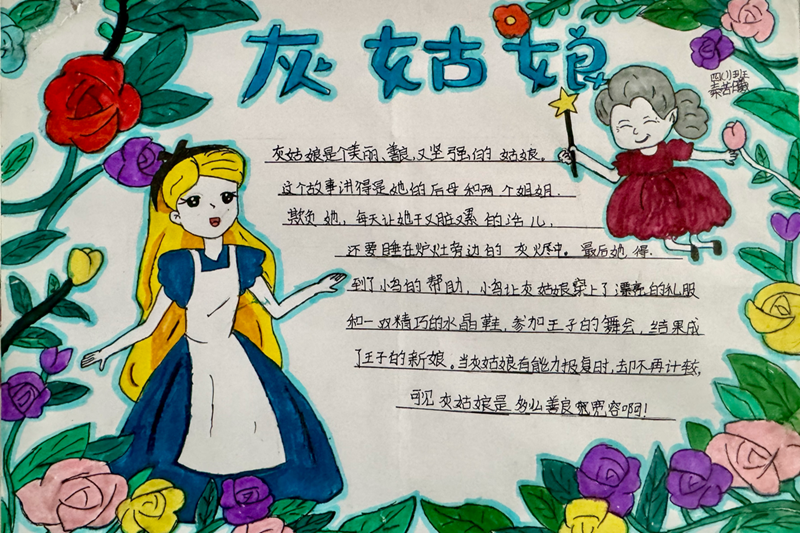 灰姑娘
四(1)班
灰姑娘是个美丽、善良、又坚强的姑娘。
这个故事讲得是她的后母和两个姐姐
欺负她，每天让她干又脏又累的活儿，
还要睡在炉灶旁边的灰烬中。最后她得
到了小鸟的帮助，小鸟让灰姑娘穿上了漂亮的礼服
和一双精巧的水晶鞋，参加王子的舞会，结果成
了王子的新娘。当灰姑娘有能力报复时，却不再计较，
可见灰姑娘是多么善良宽容啊！